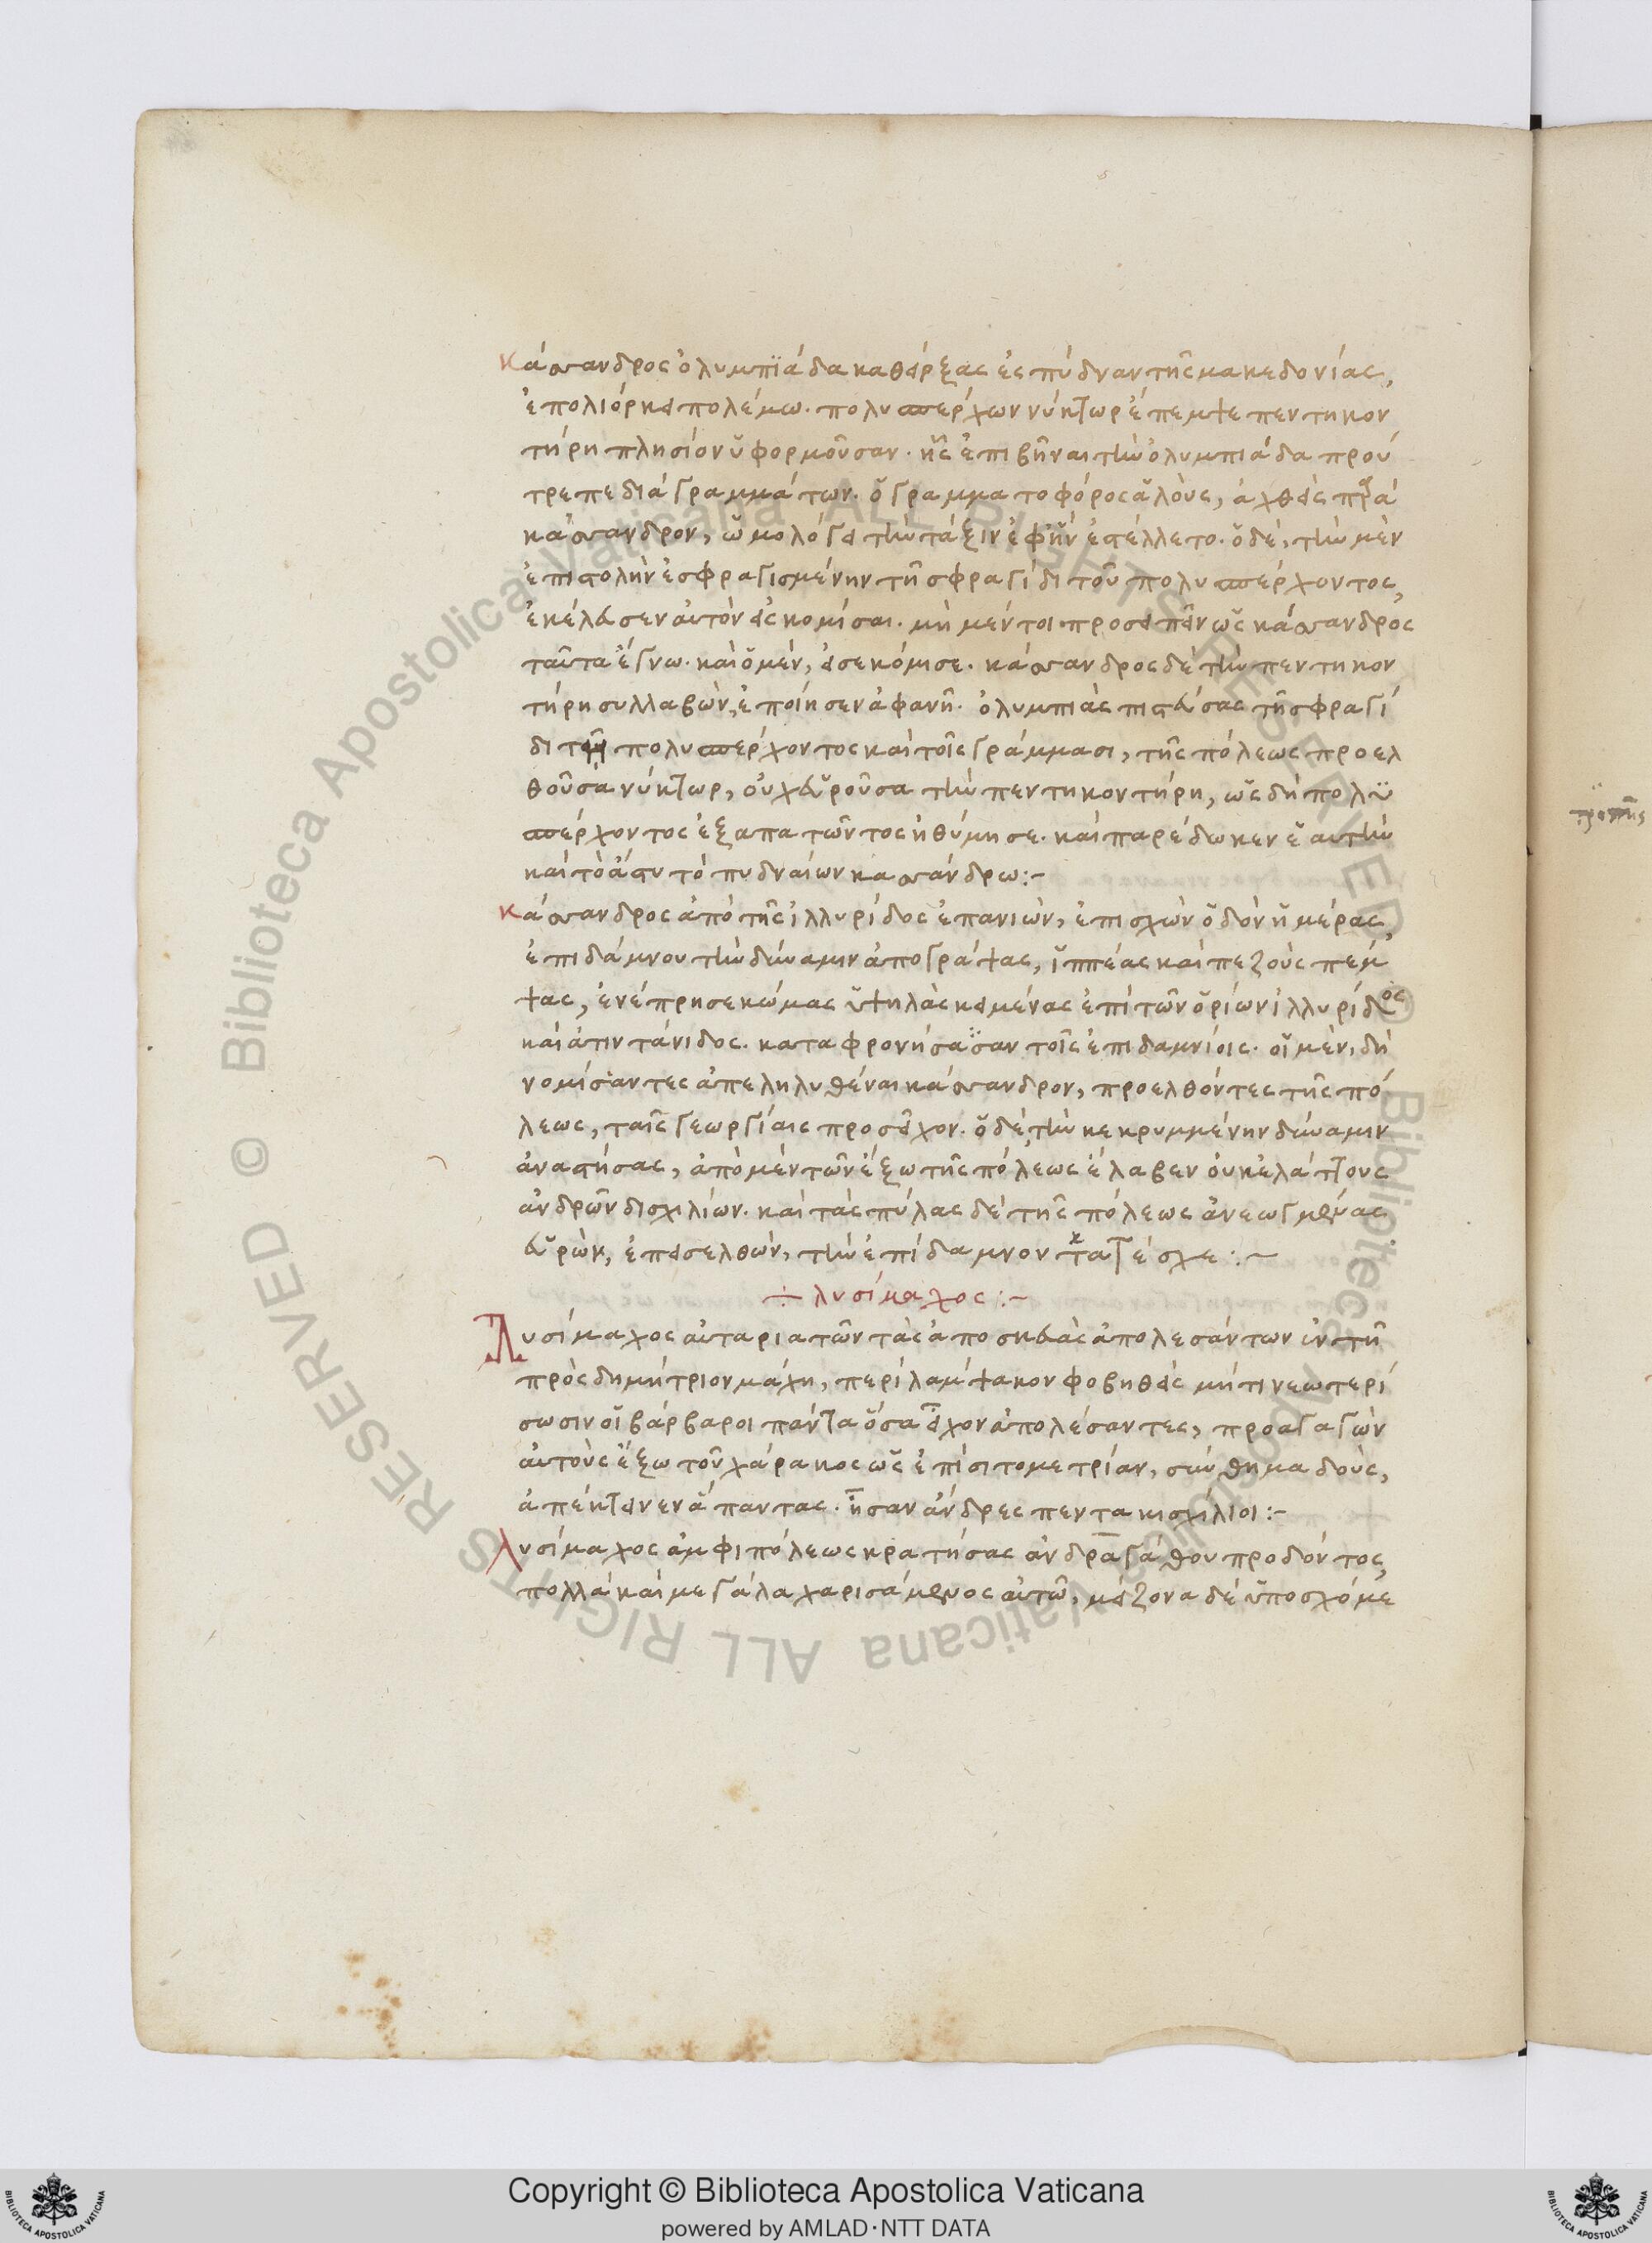 κάσσανδρος ὀλυμπϊάδα καθείρξας ἐς πύδναν τῆς μακεδονίας,
ἐπολιόρκει πολέμω. πολυσπέρχων νύκτωρ ἔπεμψε πεντηκον
τήρη πλησίον ὑφορμοῦσαν. ἧς ἐπιβῆναι τὴν ὀλυμπιάδα πρού
τρεπε διά γραμμάτων. ὁ γραμματοφόρος ἁλοὺς, ἀχθεὶς παρά
κάσσανδρον, ὡμολόγει τὴν τάξιν ἐφ' ἣν ἐστέλλετο. ὁ δέ, τὴν μὲν
ἐπιστολὴν ἐσφραγισμένην τῆ σφραγίδι τοῦ πολυσπέρχοντος,
ἐκέλευσεν αὐτὸν εἰσκομίσαι. μὴ μέντοι προσειπεῖν ὡς κάσσανδρος
ταῦτα ἔγνω. καὶ ὁ μὲν, εἰσεκόμισε. κάσσανδρος δὲ τὴν πεντηκον
τήρη συλλαβὼν, ἐποίησεν ἀφανῆ. ὀλυμπιὰς πιστεύσας τῆ σφραγί
δι τοῦ πολυσπέρχοντος καὶ τοῖς γράμμασι, τῆς πόλεως προελ
θοῦσα νύκτωρ, οὐχ εὑροῦσα τὴν πεντηκοντήρη, ὡς δὴ πολϋ
σπέρχοντος ἐξαπατῶντος ἠθύμησε. καὶ παρέδωκεν ἑαυτὴν
καὶ τὸ ἄστυ τὸ πυδναίων κασσάνδρω:-
κάσσανδρος ἀπὸ τῆς ἰλλυρίδος ἐπανιὼν, ἐπισχὼν ὁδὸν ἡμέρας,
ἐπιδάμνου τὴν δύναμιν ἀπογράψας, ἱππέας καὶ πεζοὺς πέμ
ψας, ἐνέπρησε κώμας ὑψηλὰς κειμένας ἐπὶ τῶν ὁρίων ἰλλυρίδος
καὶ ἀτιντάνιδος. καταφρονήσασαν τοῖς ἐπιδαμνίοις. οἱ μὲν, δὴ
νομίσαντες ἀπεληλυθέναι κάσσανδρον, προελθόντες τῆς πό
λεως, ταῖς γεωργίαις προσεῖχον. ὁ δὲ, τὴν κεκρυμμένην δύναμιν
ἀναστήσας, ἀπὸ μὲν τῶν ἔξω τῆς πόλεως ἔλαβεν οὐκ ἐλάττους
ἀνδρῶν δισχιλίων. καὶ τὰς πύλας δὲ τῆς πόλεως ἀνεωγμένας
εὑρὼν, ἐπεισελθὼν, τὴν ἐπίδαμνον κατέσχε:-
+ λυσίμαχος:-
Λυσίμαχος αὐταριατῶν τὰς ἀποσκευὰς ἀπολεσάντων ἐν τῆ
πρὸς δημήτριον μάχη, περὶ λάμψακον φοβηθεὶς μή τι νεωτερί
σωσιν οἱ βάρβαροι πάντα ὅσα εἶχον ἀπολέσαντες, προαγαγὼν
αὐτοὺς ἔξω τοῦ χάρακος ὡς ἐπὶ σιτομετρίαν, σύνθημα δοὺς,
ἀπέκτεινεν ἅπαντας. ἦσαν ἄνδρες πεντακισχίλιοι:-
Λυσίμαχος ἀμφιπόλεως κρατήσας ἀνδραγάθου προδόντος,
πολλὰ καὶ μεγάλα χαρισάμενος αὐτῶ, μείζονα δὲ ὑποσχόμε
Copyright © Biblioteca Apostolica Vaticana
powered by AMLAD·NTT DATA